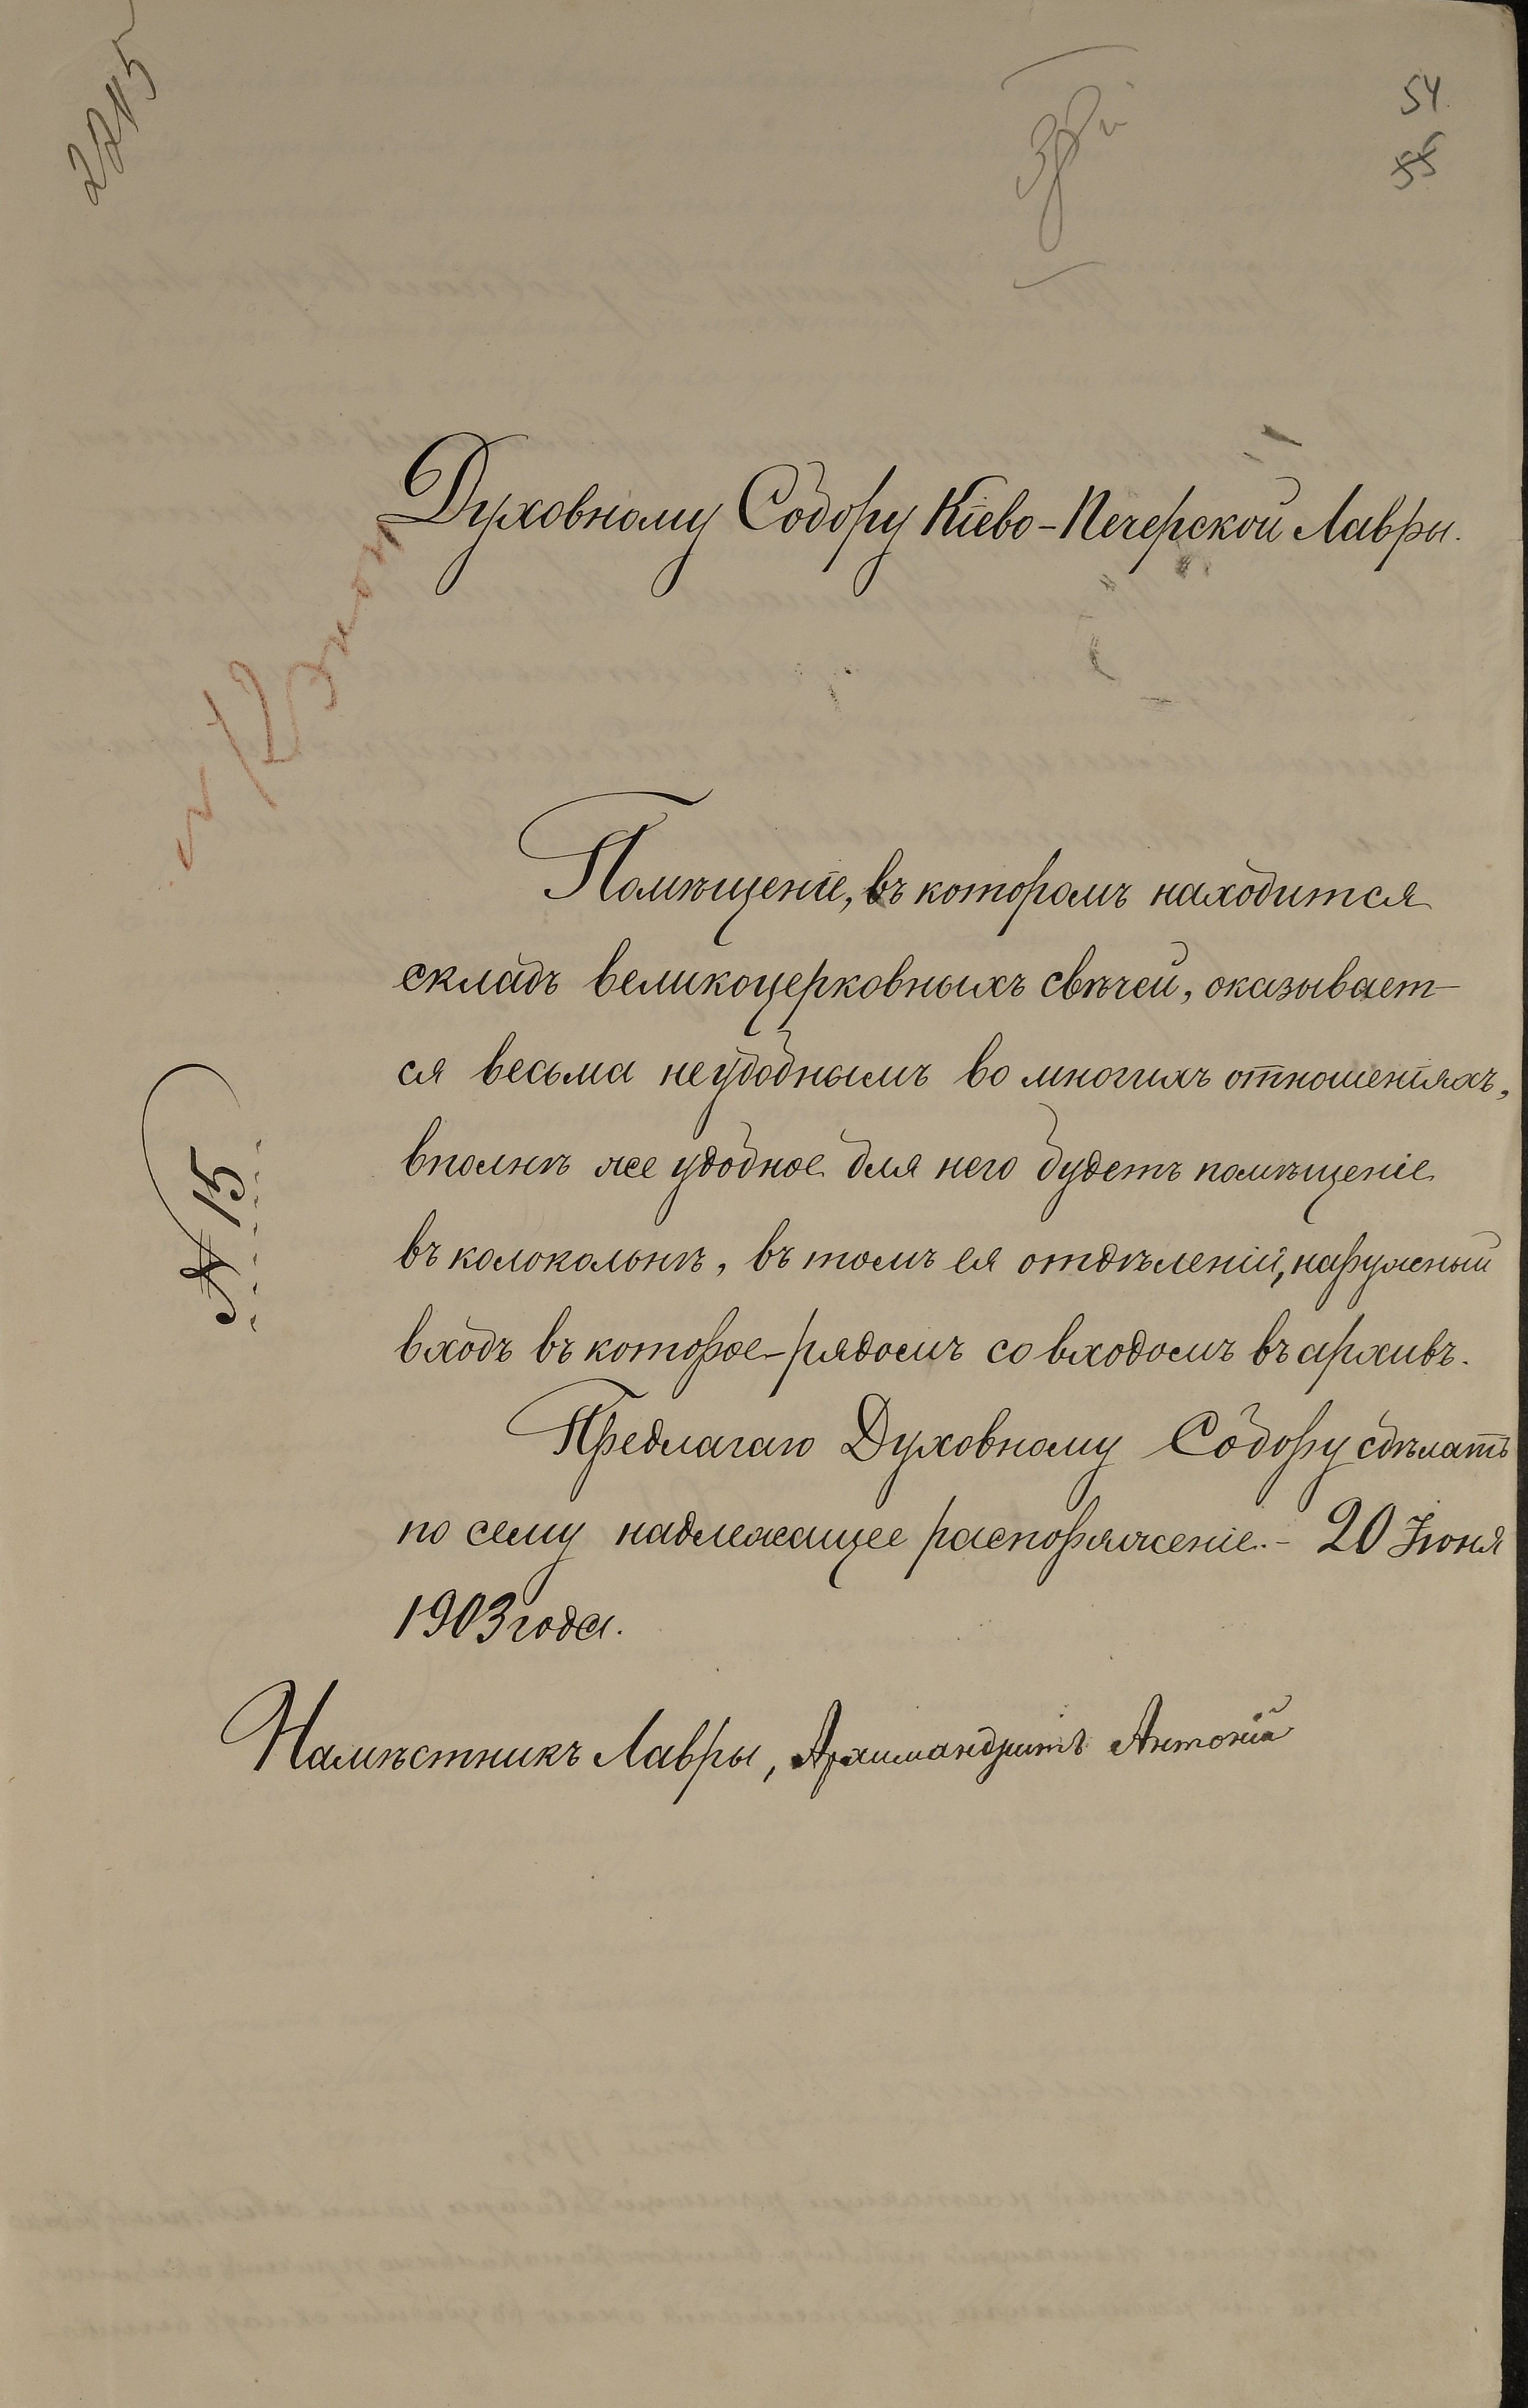 2215
54
55
Духовному Собору Кіево-Печерской Лавры.
Помѣщеніе, въ которомъ находится
складъ великоцерковныхъ свѣчей, оказывает-
ся весьма неудобнымъ во многихъ отношеніяхъ,
вполнѣ же удобное для него будетъ помѣщеніе
въ колокольнѣ, въ томъ ея отдѣленіи, наружный
входъ въ которое - рядомъ со входомъ въ архивъ.
Предлагаю Духовному Собору сдѣлать
по сему надлежащее распоряженіе. - 20 Іюня
1903 года.
Намѣстникъ Лавры, Архимандритъ Антоній
№ 15